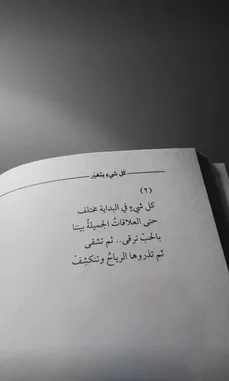 كل شيءٍ يتغيّر
(٢)
كل شيءٍ في البداية مختلف
حتى العلاقاتُ الجميلةُ بيننا
بالحبّ ترقى.. ثم تشقى
ثم تذروها الرياحُ وتنكشِفْ